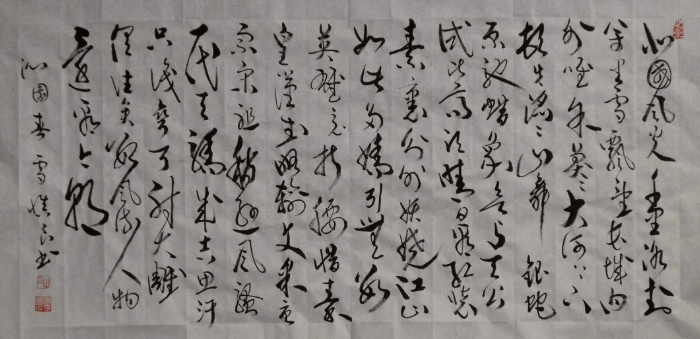 北國风光千里冰封
万里雪飘望长城内
外惟余莽莽大河上下
顿失滔滔山舞银蛇
原驰蜡象欲与天公
试比高须晴日看红装
素裹分外妖娆江山
如此多娇引无数
英雄竞折腰惜秦
皇汉武略输文采唐
宗宋祖稍逊风骚
一代天骄成吉思汗
只识弯弓射大雕
俱往矣数风流人物
还看今朝
沁園春雪 书